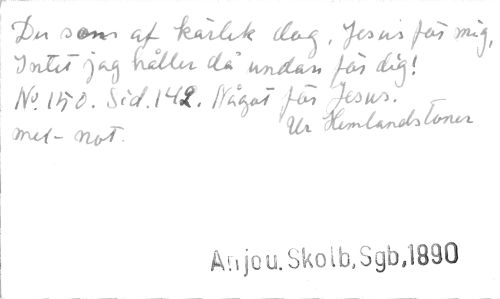 Du som af kärlek dog, Jesus för mig,
Intet jag håller då undan för dig!
No. 150. Sid. 142. Något för Jesus.
Ur Hemlandstoner
met- not.
Anjou. Skolb, Sgb, 1890